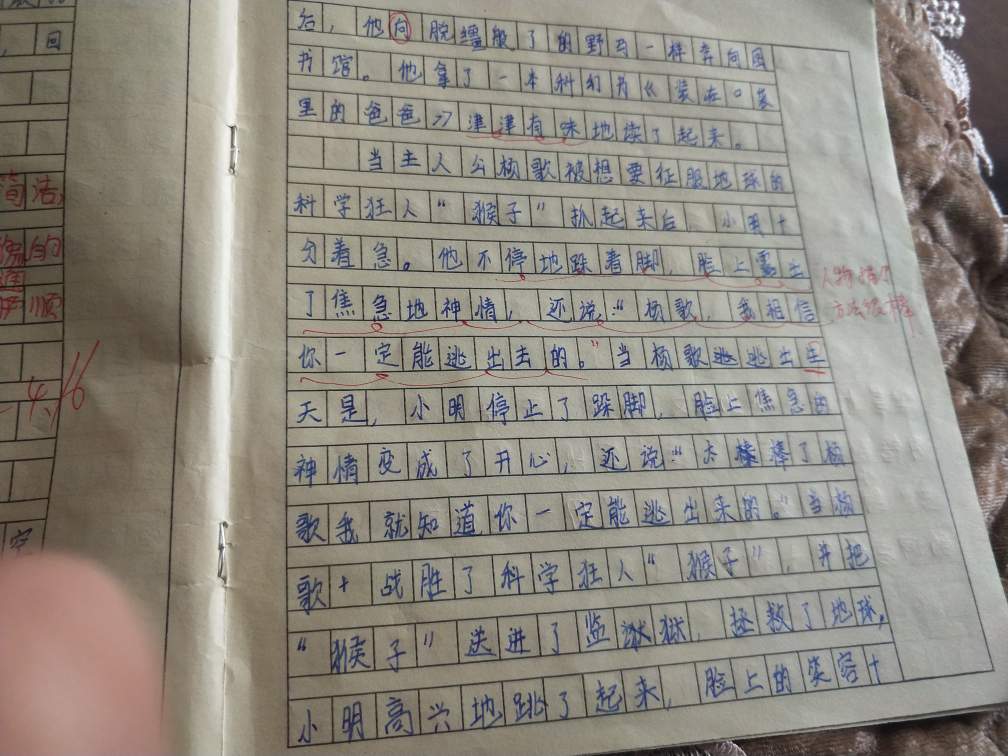 回
简洁,
4.16
后，他向脱缰般了的野马一样奔向图
书馆。他拿了一本科幻为《装在口袋
里的爸爸》津津有味地读了起来。
当主人公杨歌被想要征服地球的
科学狂人“猴子”抓起来后，小明十
分着急。他不停地跺着脚，脸上露出
了焦急地神情，还说：“杨歌，我相信
你一定能逃出去的。”当杨歌逃逃出生
天是，小明停止了跺脚，脸上焦急的
神情变成了开心，还说：“太棒棒了杨
歌我就知道你一定能逃出来的。”当杨
歌十战胜了科学狂人“猴子”，并把
“猴子”送进了监狱，拯救了地球，
小明高兴地跳了起来，脸上的笑容十
人物描写
方法很棒